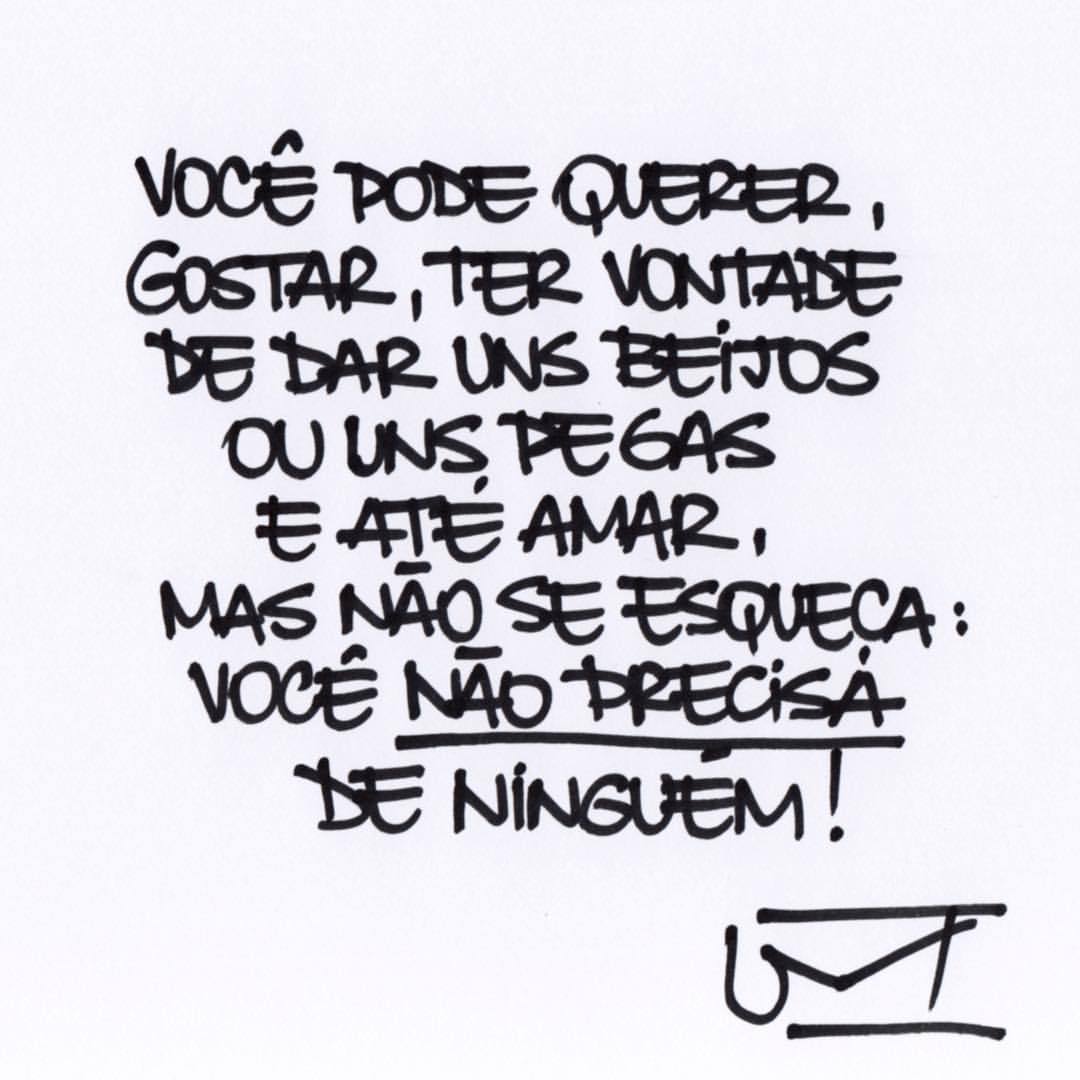 VOCÊ PODE QUERER,
GOSTAR, TER VONTADE
DE DAR UNS BEIJOS
OU UNS PEGAS
E ATÉ AMAR,
MAS NÃO SE ESQUEÇA:
VOCÊ NÃO PRECISA
DE NINGUÉM!